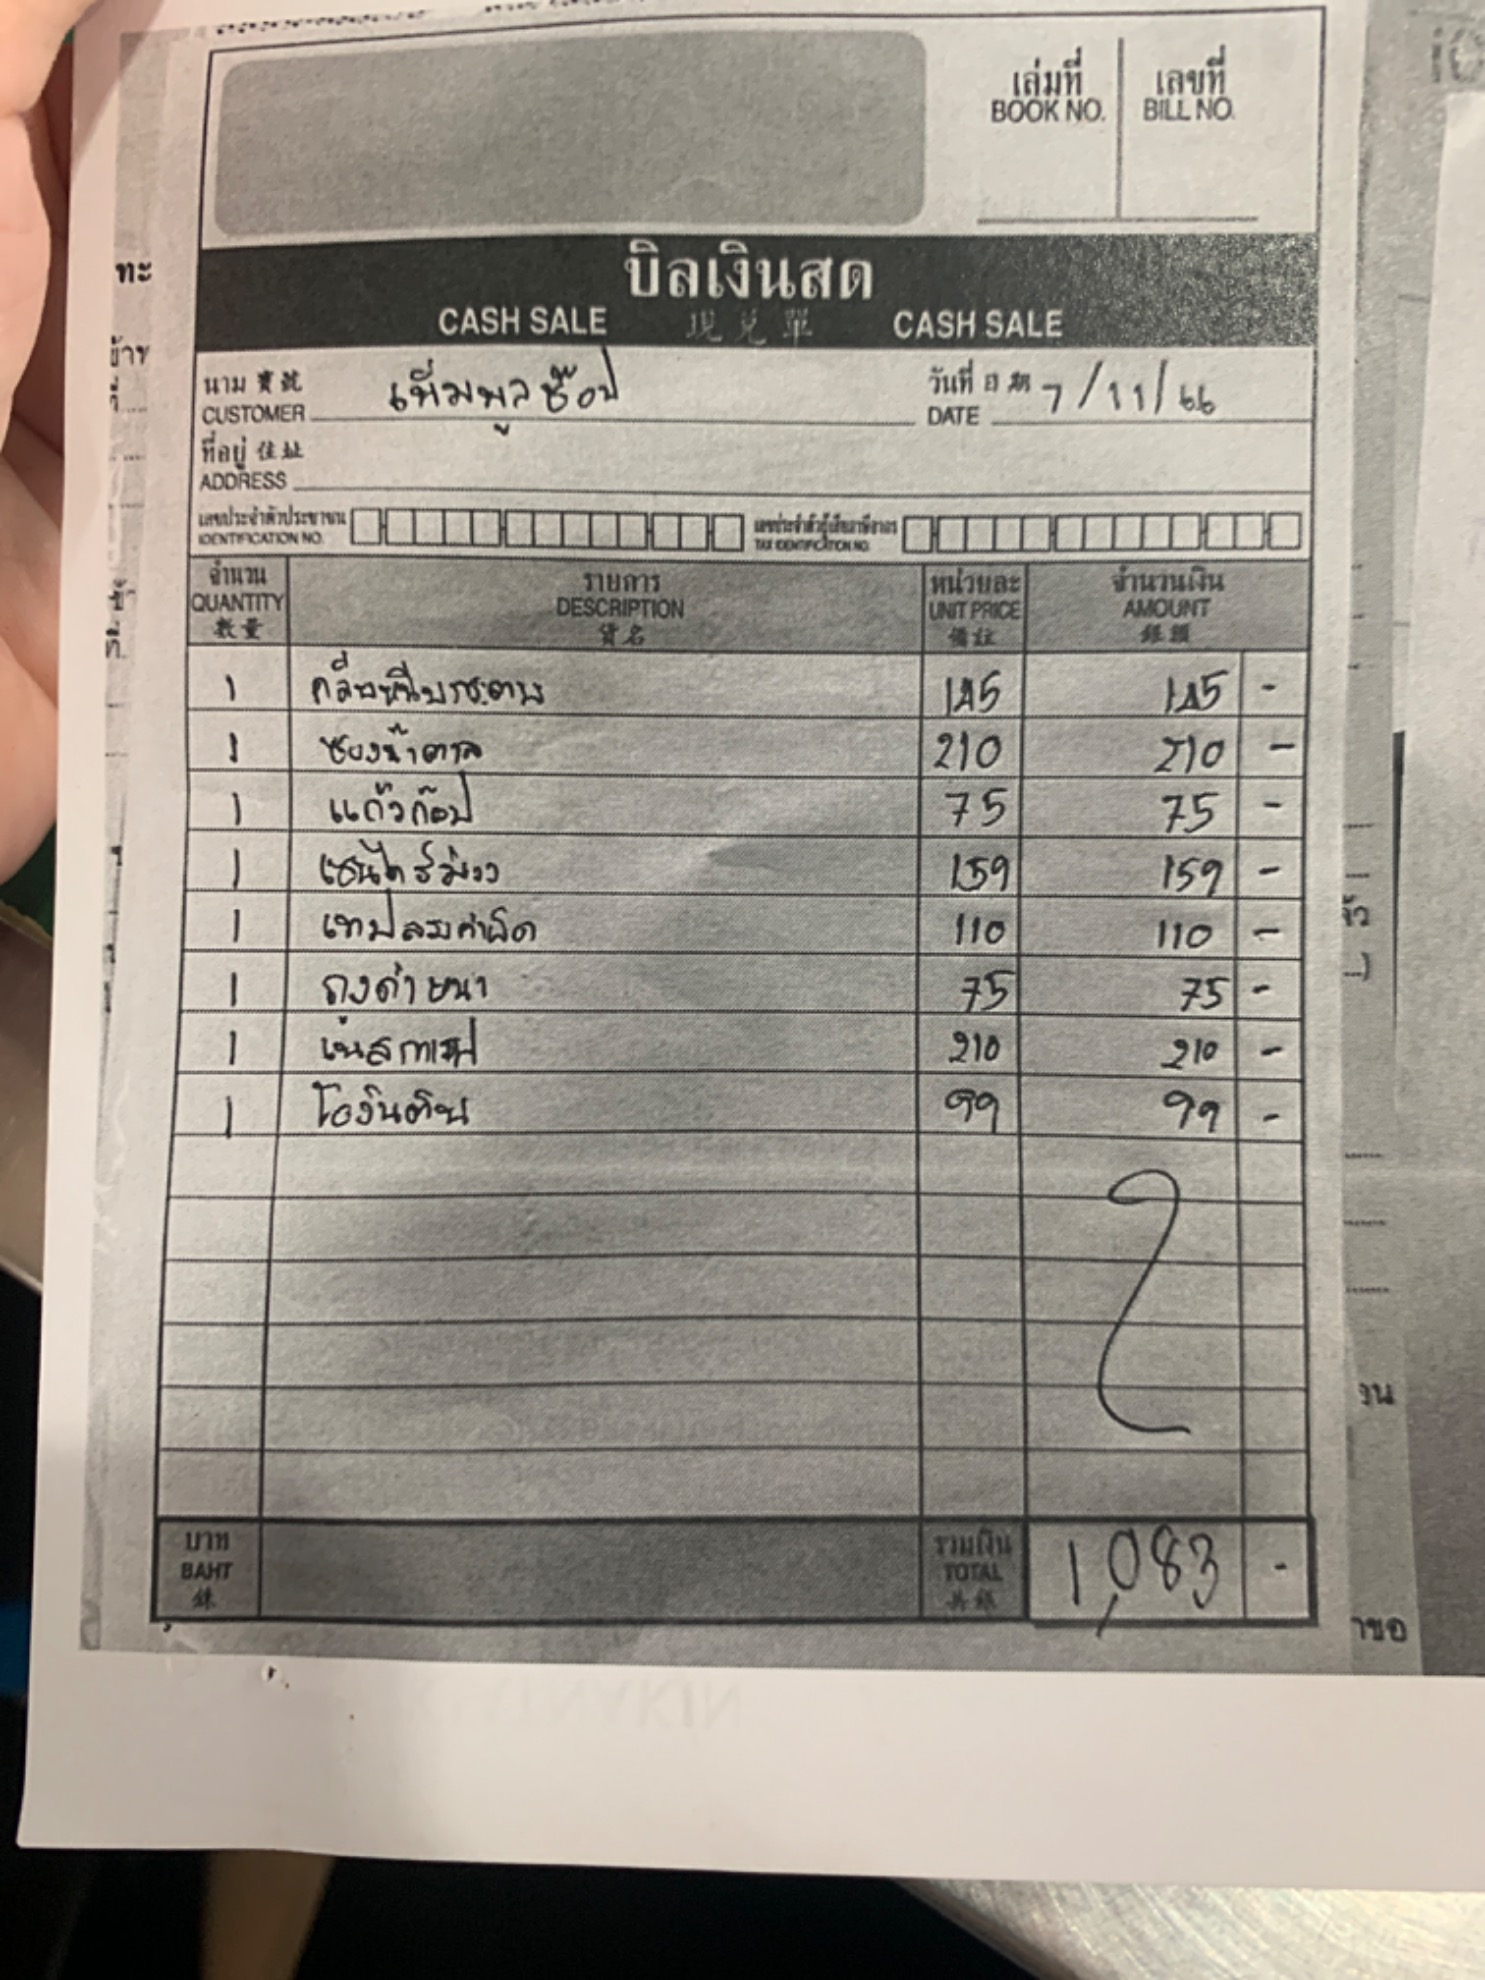 เล่มที่ เลขที่
BOOK NO. BILL NO.
บิลเงินสด
CASH SALE 現兌單 CASH SALE
นาม 寶號 เพิ่มพูลช๊อป วันที่ 日期 7/11/66
CUSTOMER DATE
ที่อยู่ 住址
ADDRESS
เลขประจำตัวประชาชน เลขประจำตัวผู้เสียภาษีอากร
IDENTIFICATION NO. TAX IDENTIFICATION NO.
จำนวน รายการ หน่วยละ จำนวนเงิน
QUANTITY DESCRIPTION UNIT PRICE AMOUNT
數量 貨名 備註 銀額
1 คลิบหนีบกระดาษ 145 145 -
1 ซองน้ำตาล 210 210 -
1 แก้วก๊อป 75 75 -
1 159 159 -
1 เทปลบคำผิด 110 110 -
1 ถุงดำหนา 75 75 -
1 210 210 -
1 99 99 -
บาท รวมเงิน
BAHT TOTAL 1,083 -
ทะ
งน
าขอ